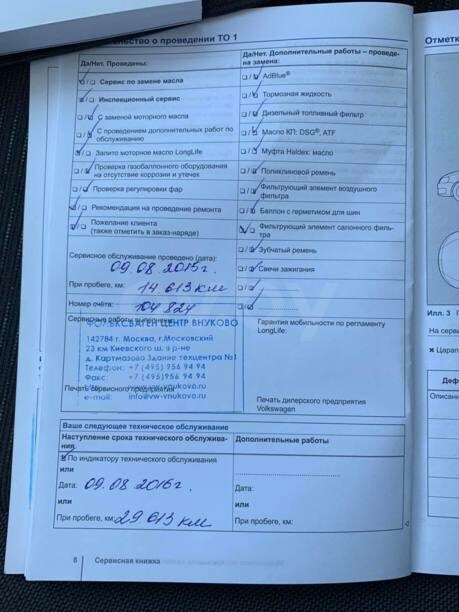 о проведении ТО 1
Да/Нет. Проведены:
☑/❑ Сервис по замене масла
☑/❑ Инспекционный сервис
❑/☑ С заменой моторного масла
❑/☑ С проведением дополнительных работ по
обслуживанию
☑/❑ Залито моторное масло LongLife
❑/☑ Проверка газобаллонного оборудования
на отсутствие коррозии и утечек
❑/☑ Проверка регулировки фар
☑/❑ Рекомендация на проведение ремонта
☑/❑ Пожелание клиента
(также отметить в заказ-наряде)
Сервисное обслуживание проведено (дата):
09.08.2015г.
При пробеге, км: 14.613 км
Номер счёта: 104 824
Сервисные работы
ФОЛЬКСВАГЕН ЦЕНТР ВНУКОВО
142784 г. Москва, г.Московский
23 км Киевского ш. в р-не
д. Картмазово Здание техцентра №1
Телефон: +7 (495) 956 94 94
Факс: +7 (495)956 94 94
www.vw-vnukovo.ru
Печать сервисного предприятия
e-mail: info@vw-vnukovo.ru
Да/Нет. Дополнительные работы – проведе-
на замена:
❑/☑ AdBlue®
❑/☑ Тормозная жидкость
❑/☑ Дизельный топливный фильтр
❑/☑ Масло КП: DSG®, ATF
❑/☑ Муфта Haldex: масло
❑/☑ Поликлиновой ремень
❑/☑ Фильтрующий элемент воздушного
фильтра
❑/☑ Баллон с герметиком для шин
☑/❑ Фильтрующий элемент салонного филь-
тра
❑/☑ Зубчатый ремень
❑/☑ Свечи зажигания
❑/☑
❑/☑
Гарантия мобильности по регламенту
LongLife:
Печать дилерского предприятия
Volkswagen
Ваше следующее техническое обслуживание
Наступление срока технического обслужива-
ния
☑ По индикатору технического обслуживания
или
Дата: 09.08 2016г.
или
При пробеге, км: 29.613 км
Дополнительные работы
Дата:
или
При пробеге, км:
8 Сервисная книжка
Отметк
Илл. 3
На серви
× Царап
Деф
Описани